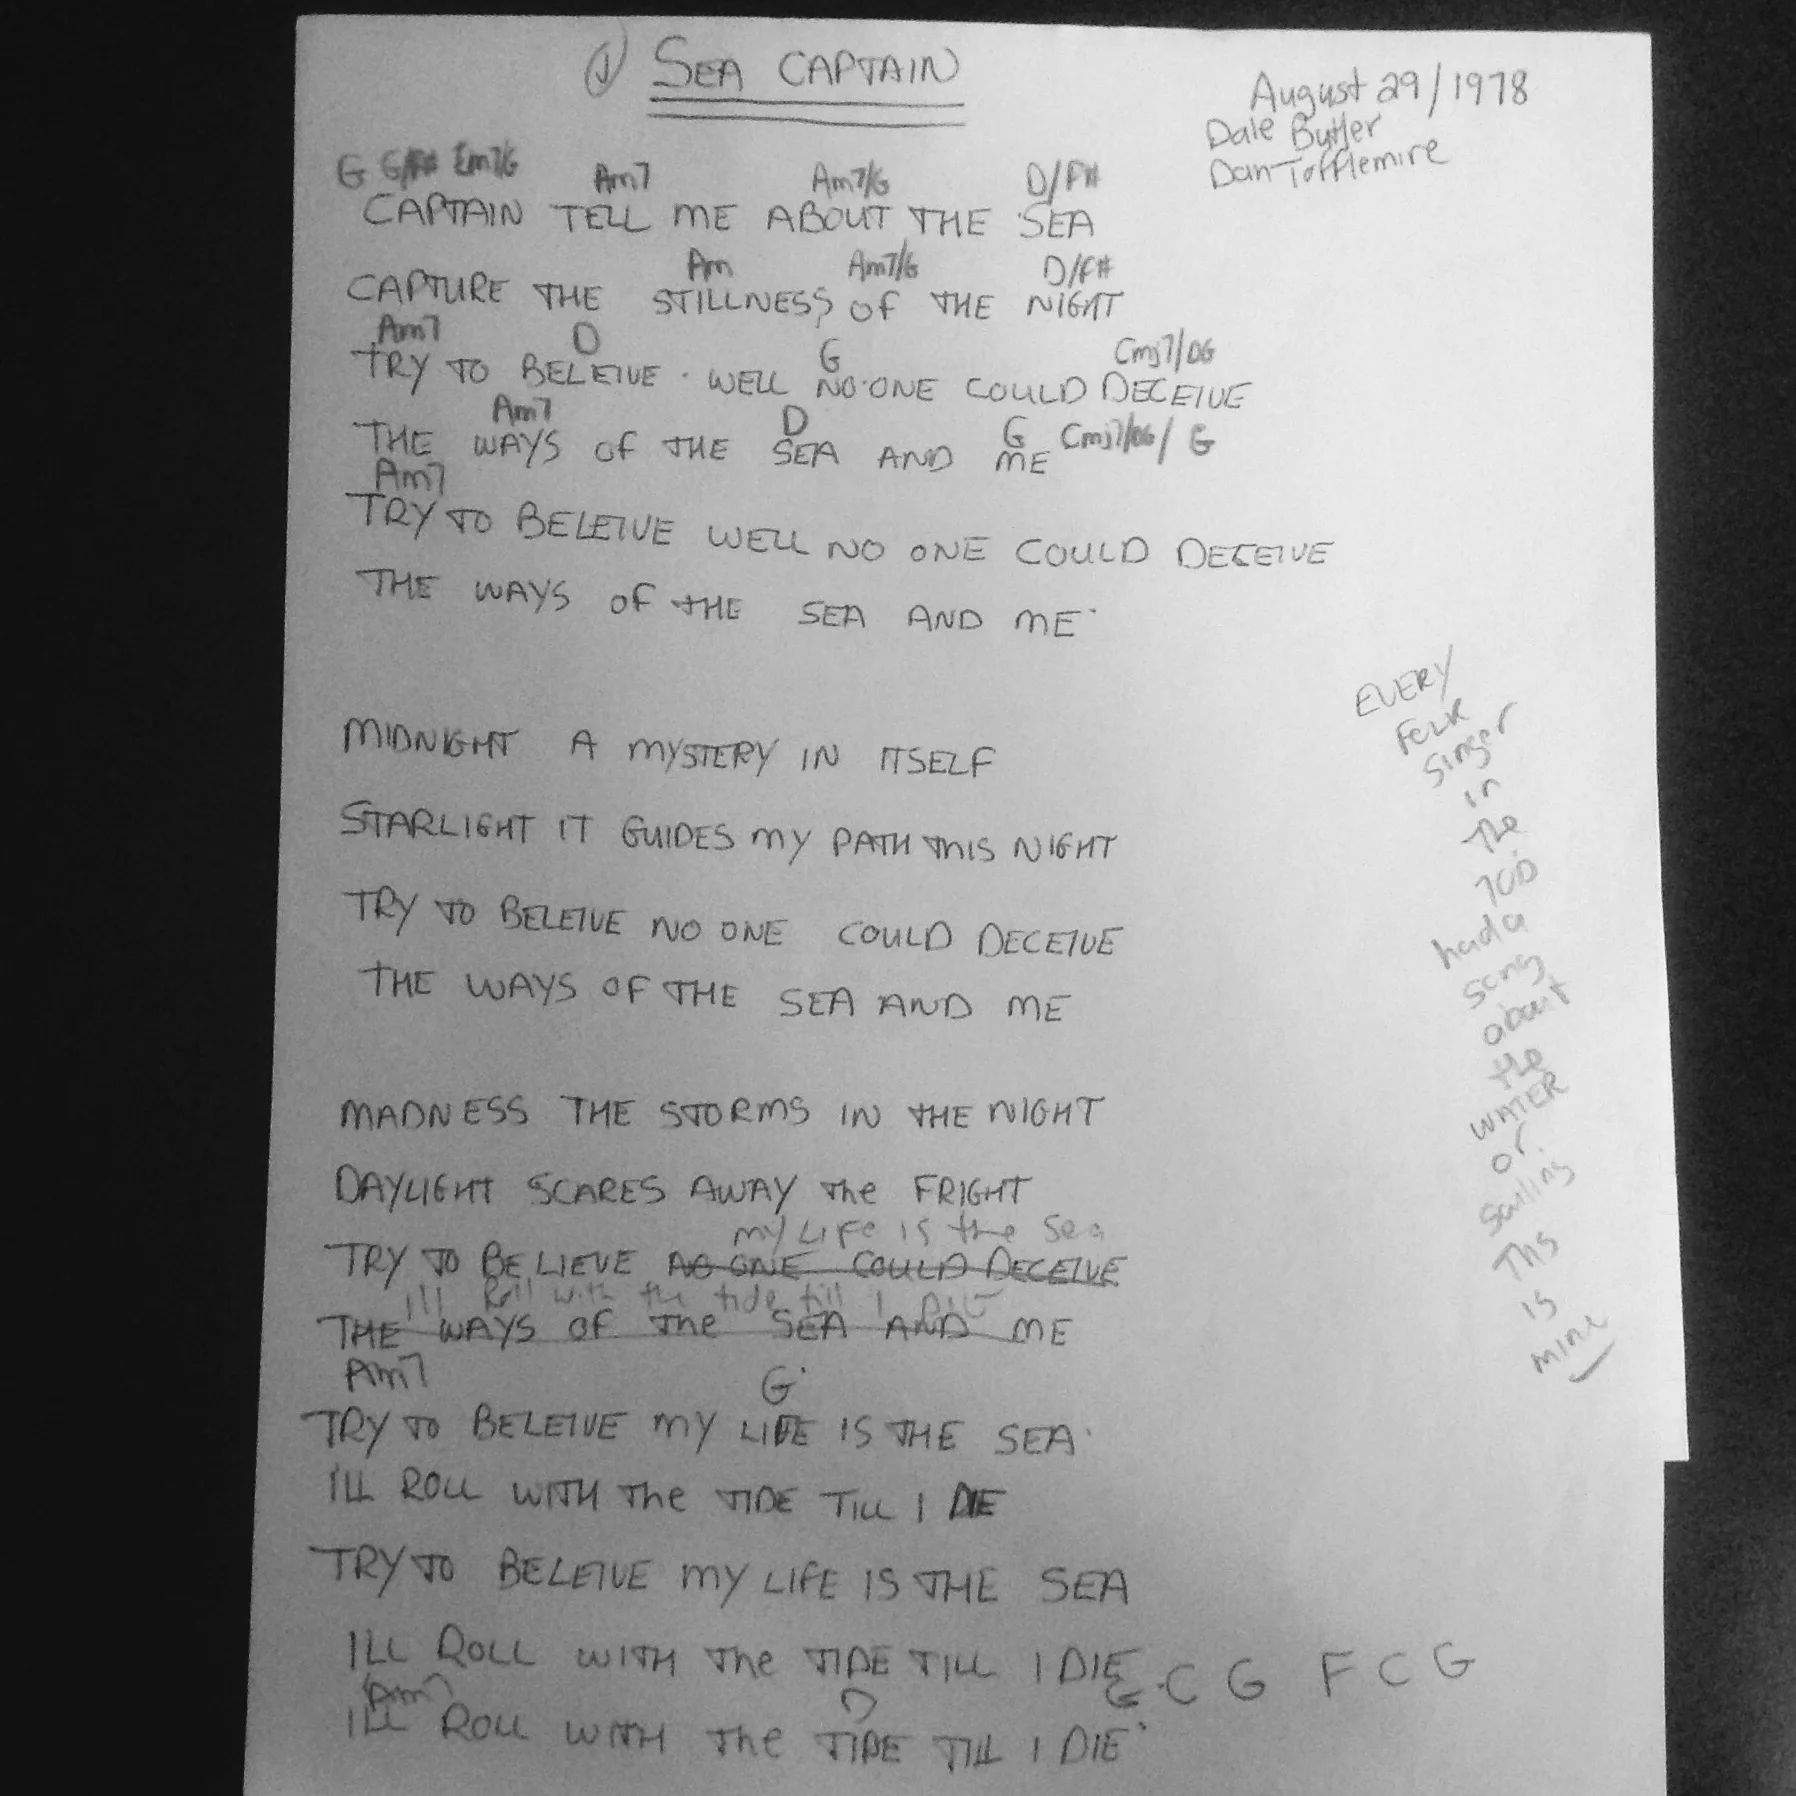 SEA CAPTAIN
August 29/1978
Dale Butler
Dan Tofflemire
G G/F# Em7/G Am7 Am7/G D/F#
CAPTAIN TELL ME ABOUT THE SEA
Am Am7/G D/F#
CAPTURE THE STILLNESS OF THE NIGHT
Am7 D G Cmj7/DG
TRY TO BELEIVE . WELL NO ONE COULD DECEIVE
Am7 D G Cmj7/DG/ G
THE WAYS OF THE SEA AND ME
Am7
TRY TO BELEIVE WELL NO ONE COULD DECEIVE
THE WAYS OF THE SEA AND ME
MIDNIGHT A MYSTERY IN ITSELF
STARLIGHT IT GUIDES MY PATH THIS NIGHT
TRY TO BELEIVE NO ONE COULD DECEIVE
THE WAYS OF THE SEA AND ME
MADNESS THE STORMS IN THE NIGHT
DAYLIGHT SCARES AWAY The FRIGHT
my LIFe is the Sea
TRY TO BELIEVE NO ONE COULD DECEIVE
I'll Roll with the tide till I DIE
THE WAYS OF The SEA AND ME
Am7 G
TRY TO BELEIVE MY LIFE IS THE SEA
I'LL ROLL WITH The TIDE TILL I DIE
TRY TO BELEIVE MY LIFE IS THE SEA
ILL ROLL WITH The TIDE TILL I DIE
Am7 D G C G F C G
ILL ROLL WITH The TIDE TILL I DIE
EVERY
FOLK
Singer
in
The
70'S
had a
song
about
the
WATER
or
Sailing
This
is
mine